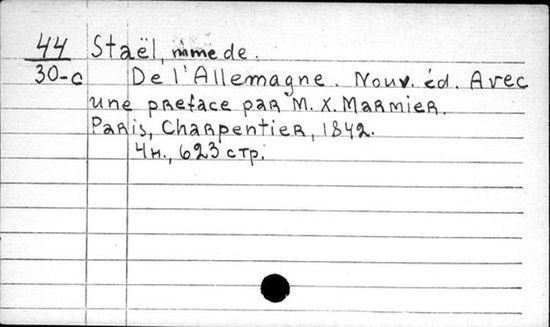 44 Staël, mme de.
30-c De l'Allemagne. Nouv. éd. Avec
une preface par M. X. Marmier.
Paris, Charpentier, 1842.
4н., 623 стр.